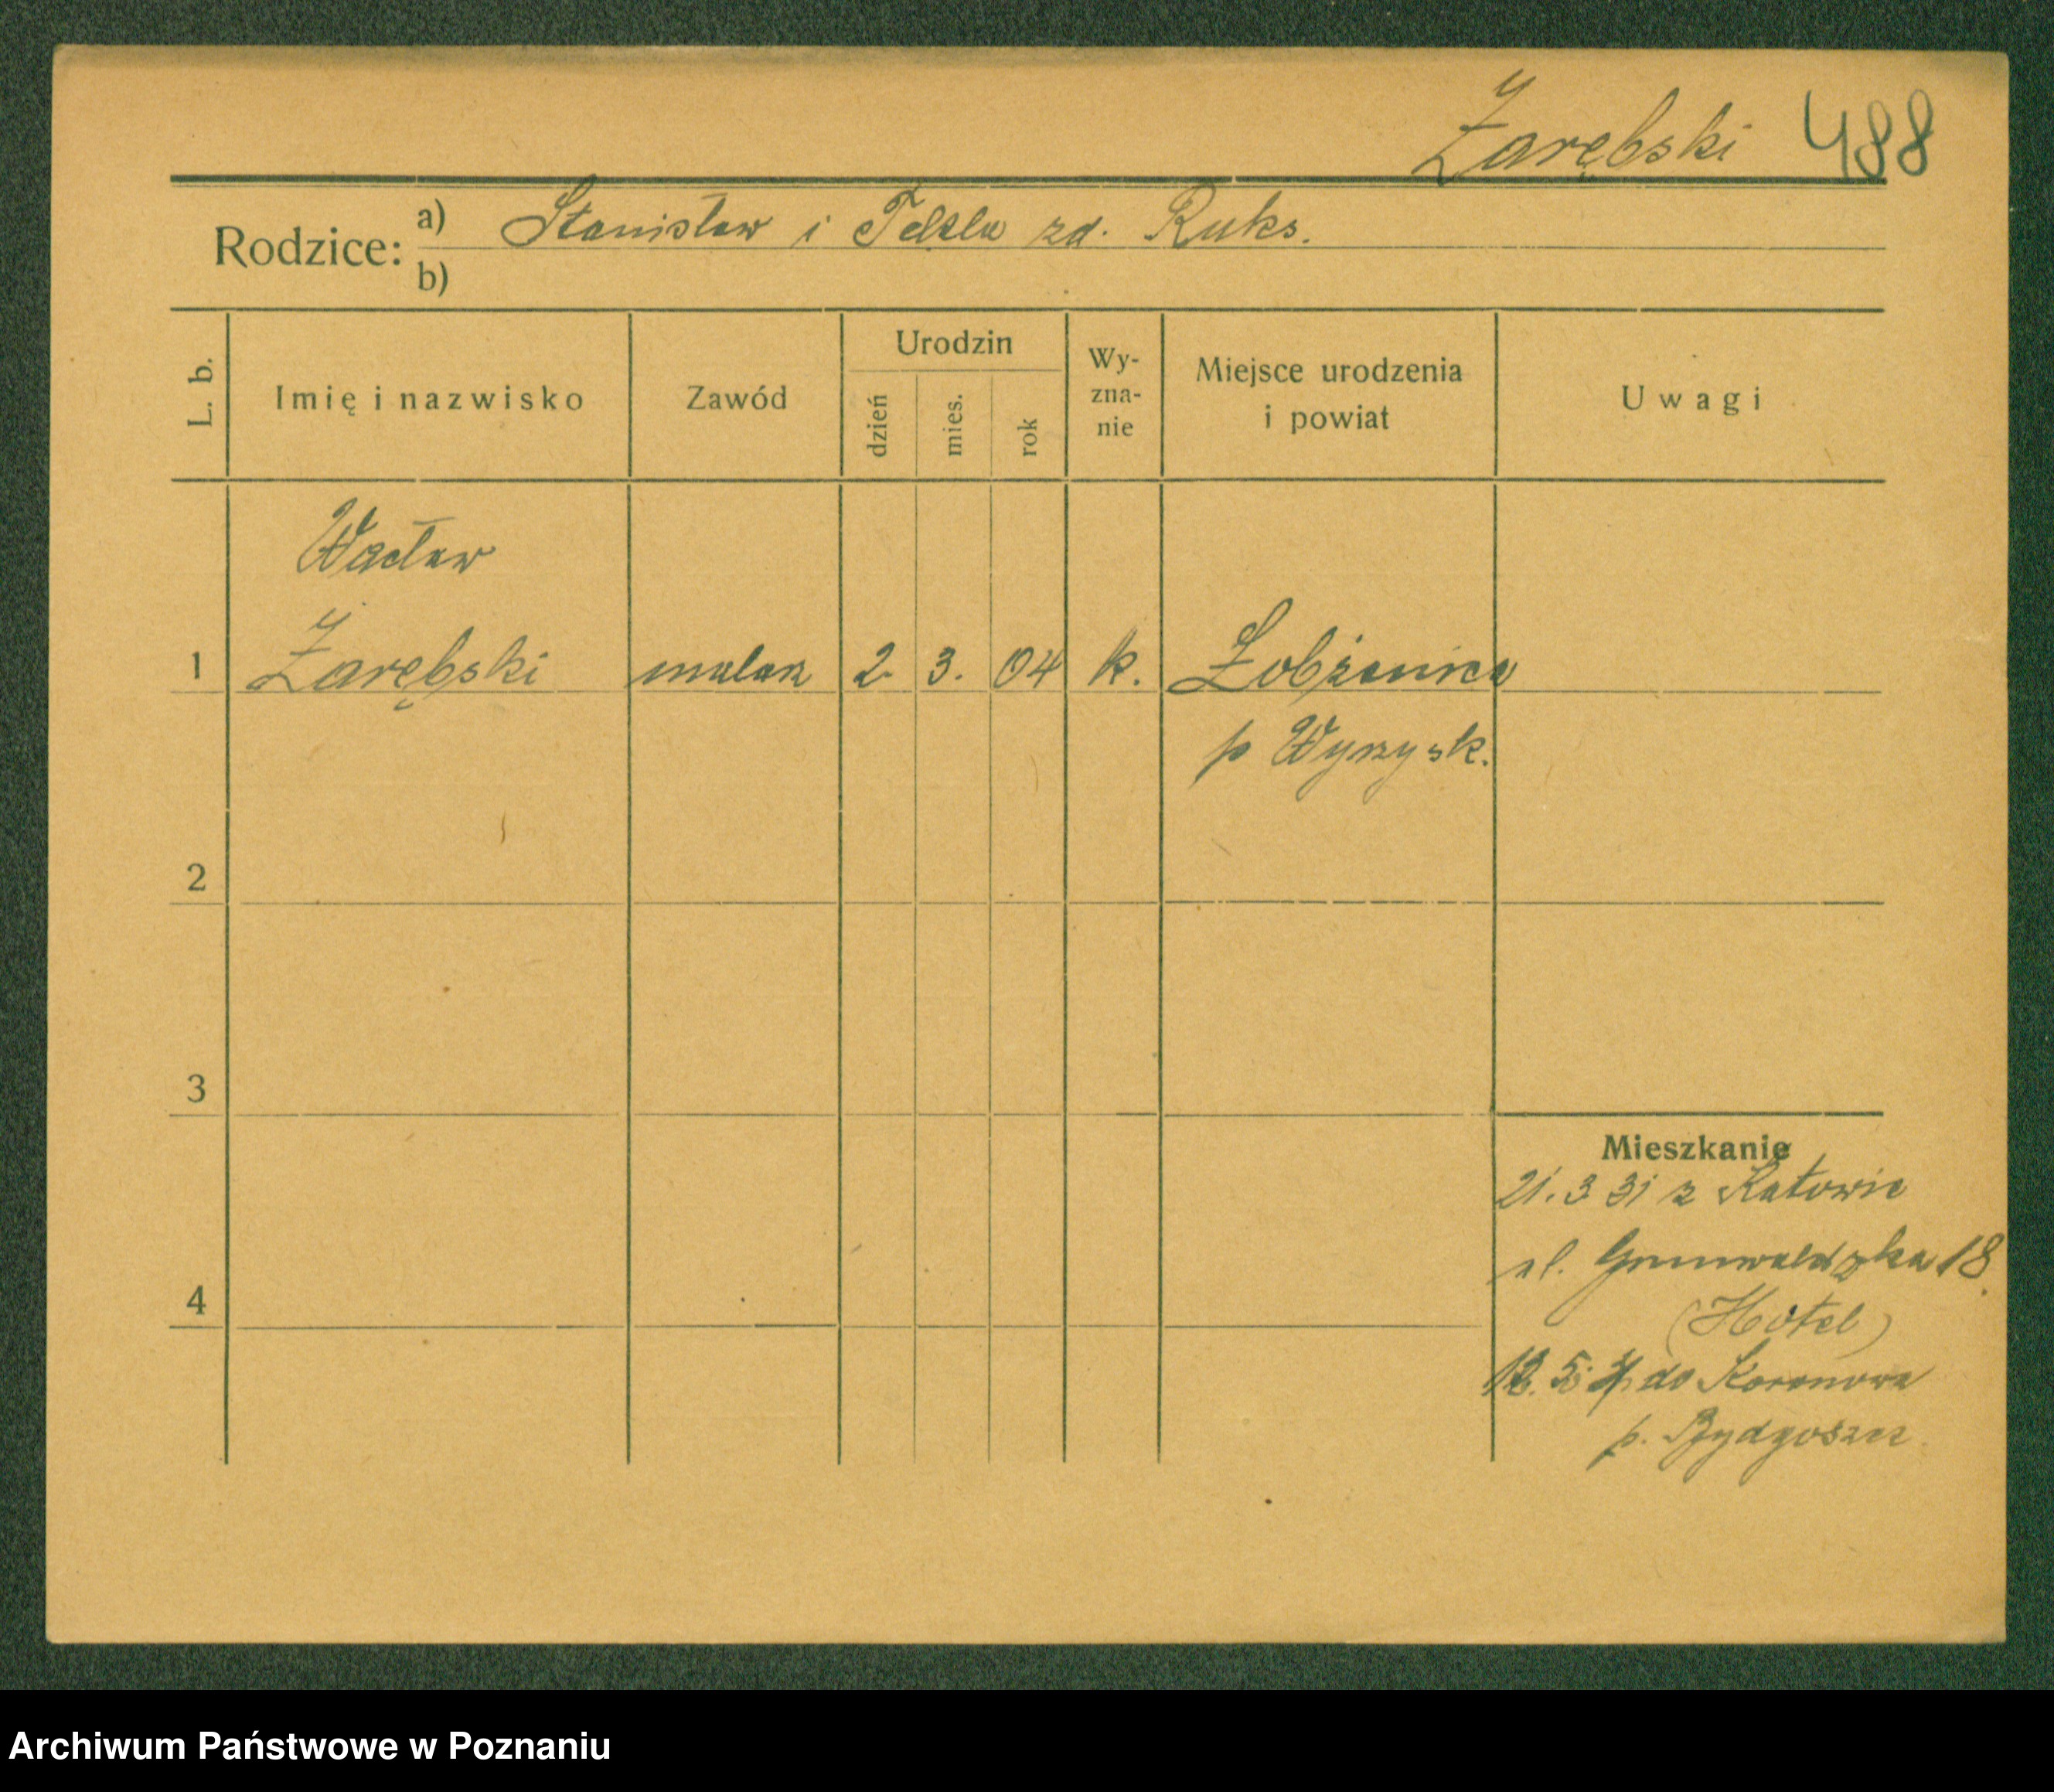 Zarębski 488
Rodzice: a) Stanisław i Tekla zd. Ruks.
b)
L. b.
Imię i nazwisko
Zawód
Urodzin
dzień
mies.
rok
Wy-
zna-
nie
Miejsce urodzenia
i powiat
Uwagi
Wacław
1 Zarębski malarz 2 3. 04 k. Łobżenica
p Wyrzysk.
2
3
4
Mieszkanie
21. 3 31 z Katowic
ul. Grunwaldzka 18
(Hotel)
do Koronowa
p. Bydgoszcz
Archiwum Państwowe w Poznaniu